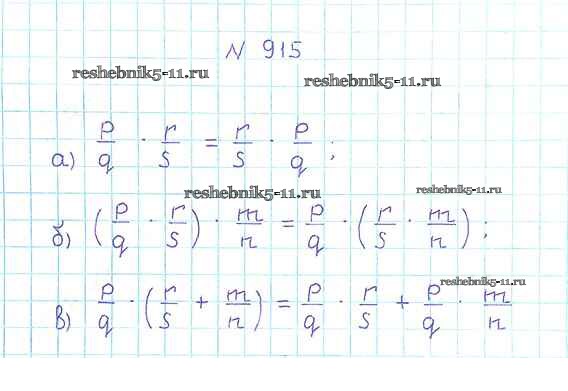 N 915
reshebnik5-11.ru
reshebnik5-11.ru
а) p/q · r/s = r/s · p/q ;
reshebnik5-11.ru
reshebnik5-11.ru
б) (p/q · r/s) · m/n = p/q · (r/s · m/n) ;
reshebnik5-11.ru
в) p/q · (r/s + m/n) = p/q · r/s + p/q · m/n